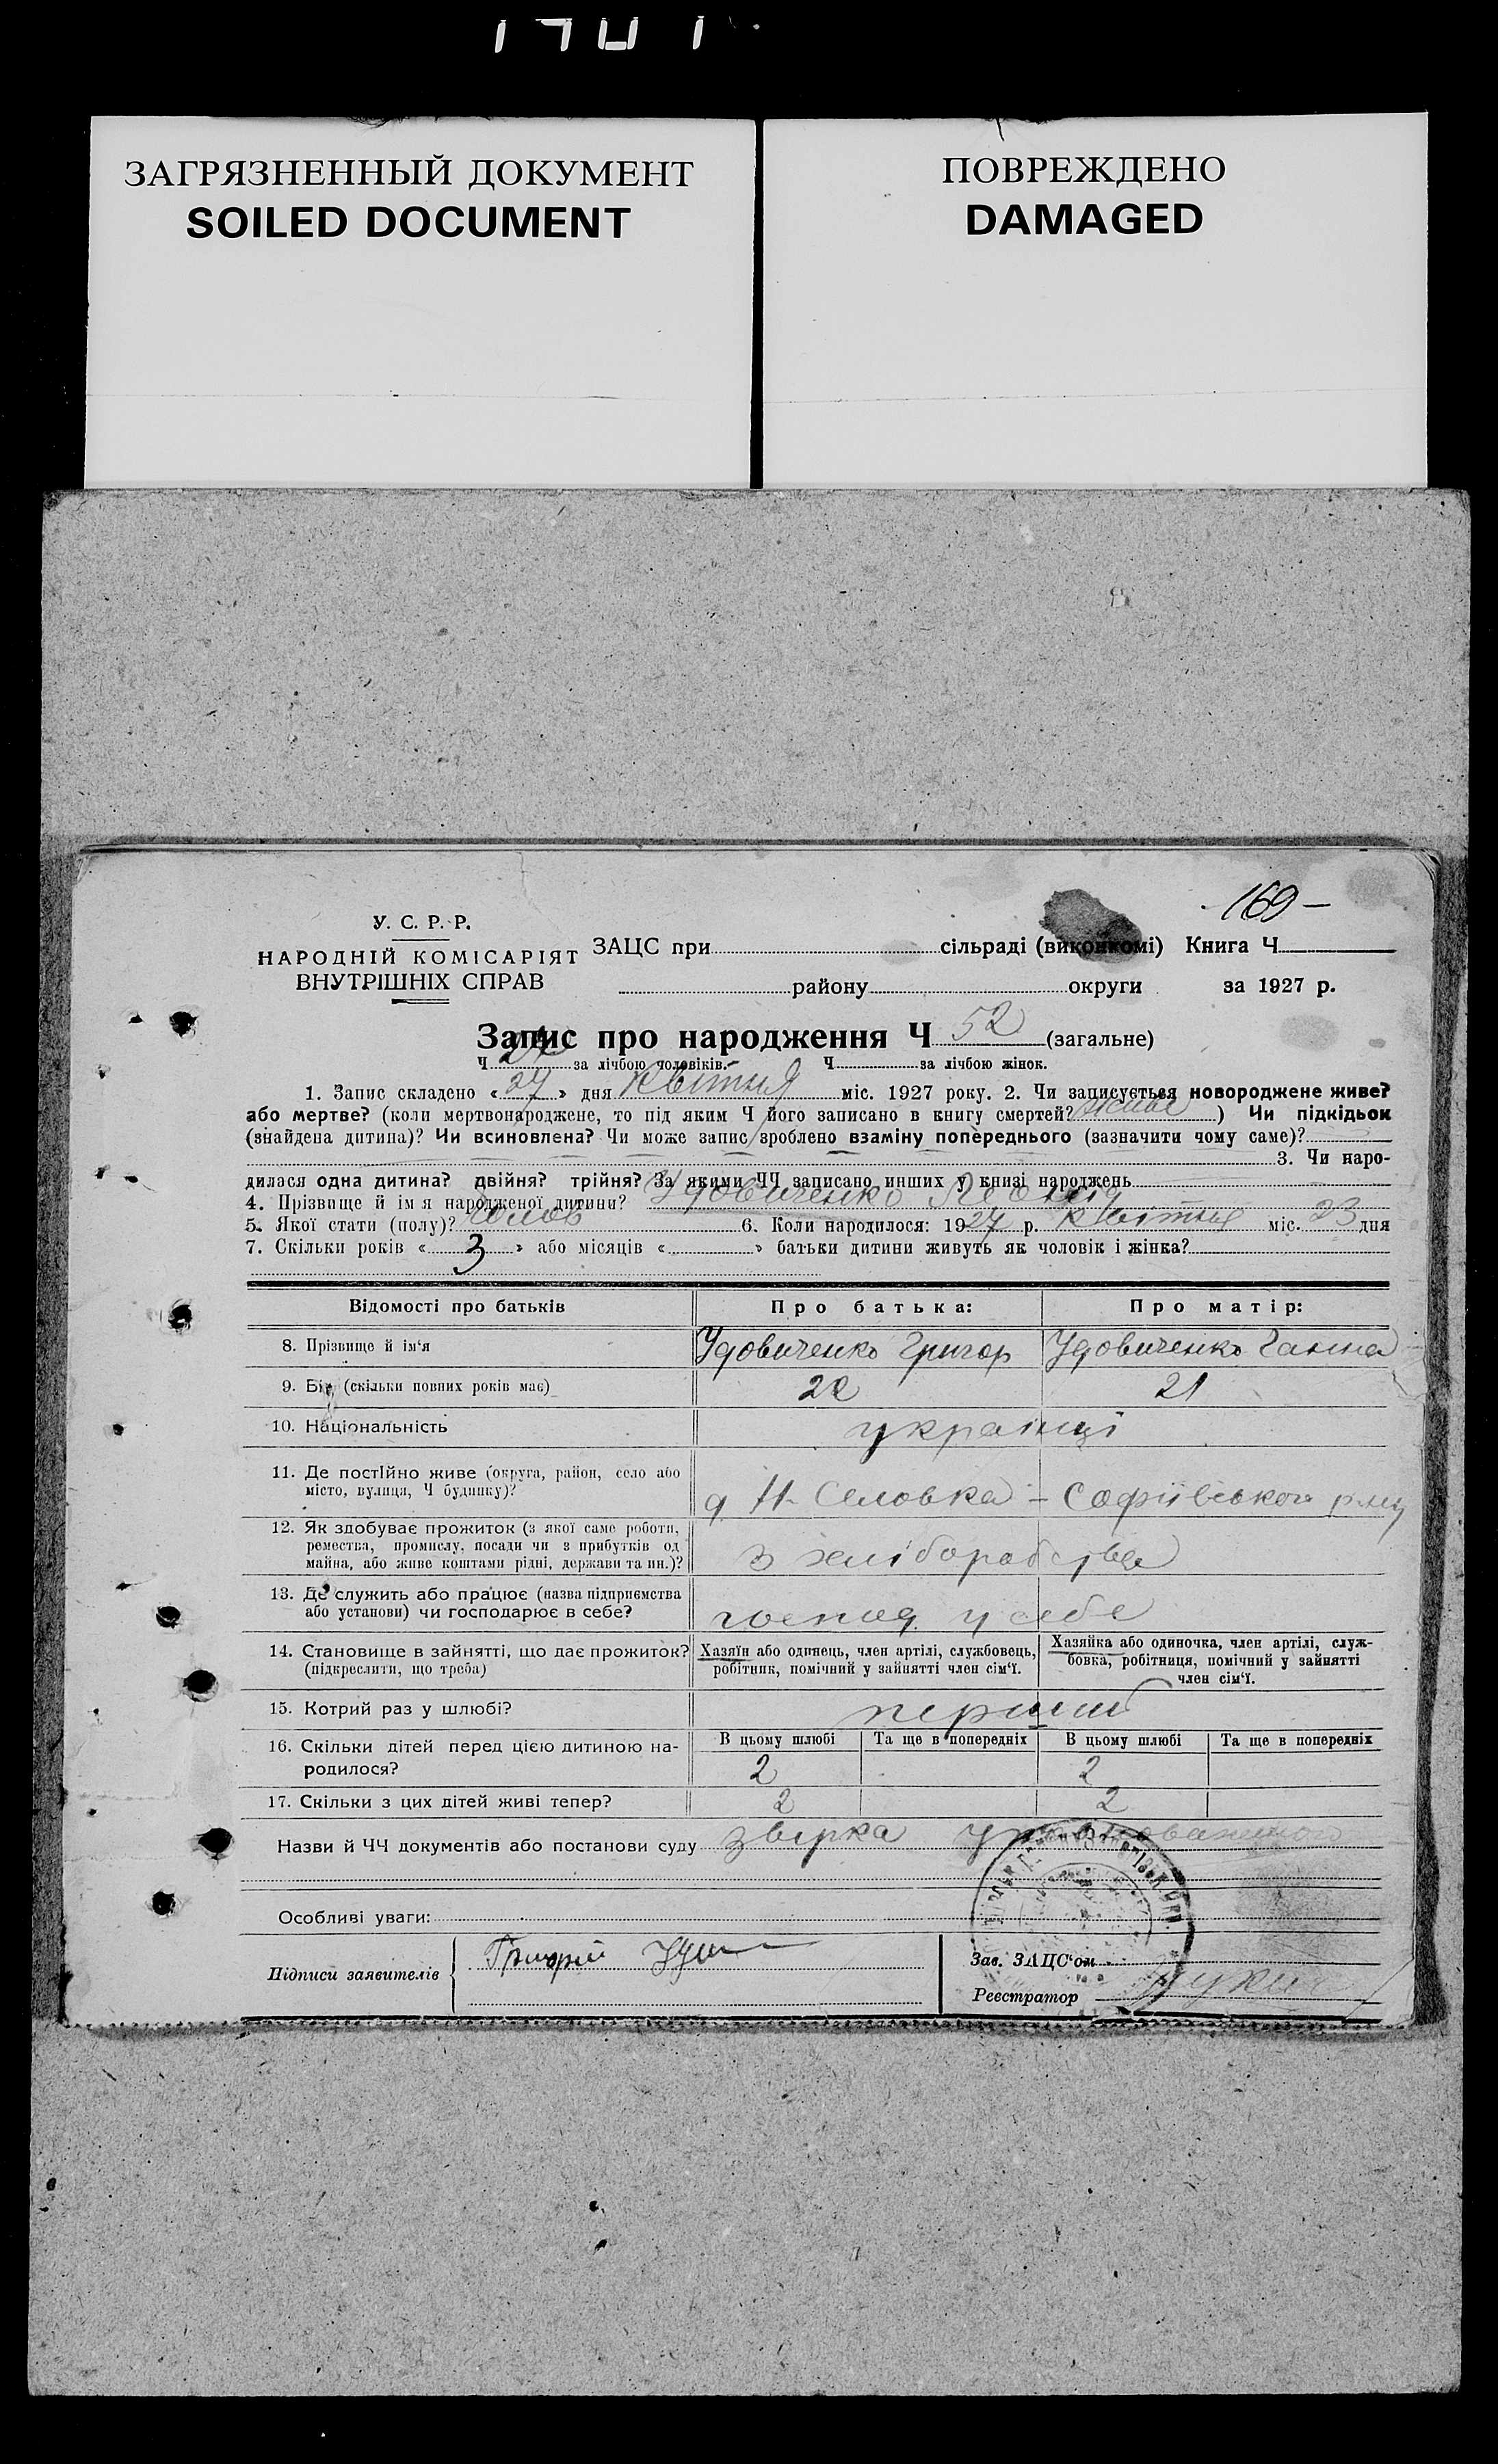 ЗАГРЯЗНЕННЫЙ ДОКУМЕНТ
SOILED DOCUMENT
ПОВРЕЖДЕНО
DAMAGED
169 –
У. С. Р. Р.
НАРОДНІЙ КОМІСАРІЯТ
ВНУТРІШНІХ СПРАВ
ЗАЦС при сільраді (виконкомі) Книга Ч
району округи за 1927 р.
Запис про народження Ч 52 (загальне)
Ч за лічбою чоловіків. Ч за лічбою жінок.
1. Запис складено « 27 » дня квітня міс. 1927 року. 2. Чи записується новороджене живе?
або мертве? (коли мертвонароджене, то під яким Ч його записано в книгу смертей? живе ) Чи підкідьок
(знайдена дитина)? Чи всиновлена? Чи може запис зроблено взаміну попереднього (зазначити чому саме)?
3. Чи наро-
дилася одна дитина? двійня? трійня? За якими ЧЧ записано инших у книзі народжень
4. Прізвище й ім я народженої дитини? Удовиченко Леонід
5. Якої стати (полу)? чолов 6. Коли народилося: 1927 р. квітня міс. 23 дня
7. Скільки років « 3 » або місяців « » батьки дитини живуть як чоловік і жінка?
Відомості про батьків Про батька: Про матір:
8. Прізвище й ім'я Удовиченко Григор Удовиченко Ганна
9. Вік (скільки повних років має) 22 21
10. Національність українці
11. Де постійно живе (округа, район, село або
місто, вулиця, Ч будинку)? Софіївського
12. Як здобуває прожиток (з якої саме роботи,
ремества, промислу, посади чи з прибутків од
майна, або живе коштами рідні, держави та ин.)? з хліборобства
13. Де служить або працює (назва підприємства
або установи) чи господарює в себе? господ. у себе
14. Становище в зайнятті, що дає прожиток?
(підкреслити, що треба)
Хазяїн або одинець, член артілі, службовець,
робітник, помічний у зайнятті член сім'ї.
Хазяйка або одиночка, член артілі, служ-
бовка, робітниця, помічний у зайнятті
член сім'ї.
15. Котрий раз у шлюбі? перший
16. Скільки дітей перед цією дитиною на-
родилося?
В цьому шлюбі Та ще в попередніх В цьому шлюбі Та ще в попередніх
2 2
17. Скільки з цих дітей живі тепер? 2 2
Назви й ЧЧ документів або постанови суду звірка
Особливі уваги:
Підписи заявителів Григорій
Зав. ЗАЦС'ом
Реєстратор